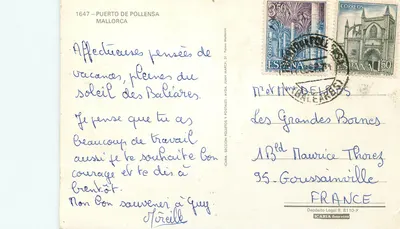 1647 - PUERTO DE POLLENSA
MALLORCA
Affectueuses pensées de
vacances, pleines du
soleil des Baléares
Je pense que tu as
beaucoup de travail
aussi je te souhaite bon
courage et te dis à
bientôt.
Mon bon souvenir à Guy
Mireille
ESPAÑA
CORREOS
ESPAÑA
(BALEARES)
Les Grandes Bornes
1 Bd Maurice Thorez
95- Goussainville
FRANCE